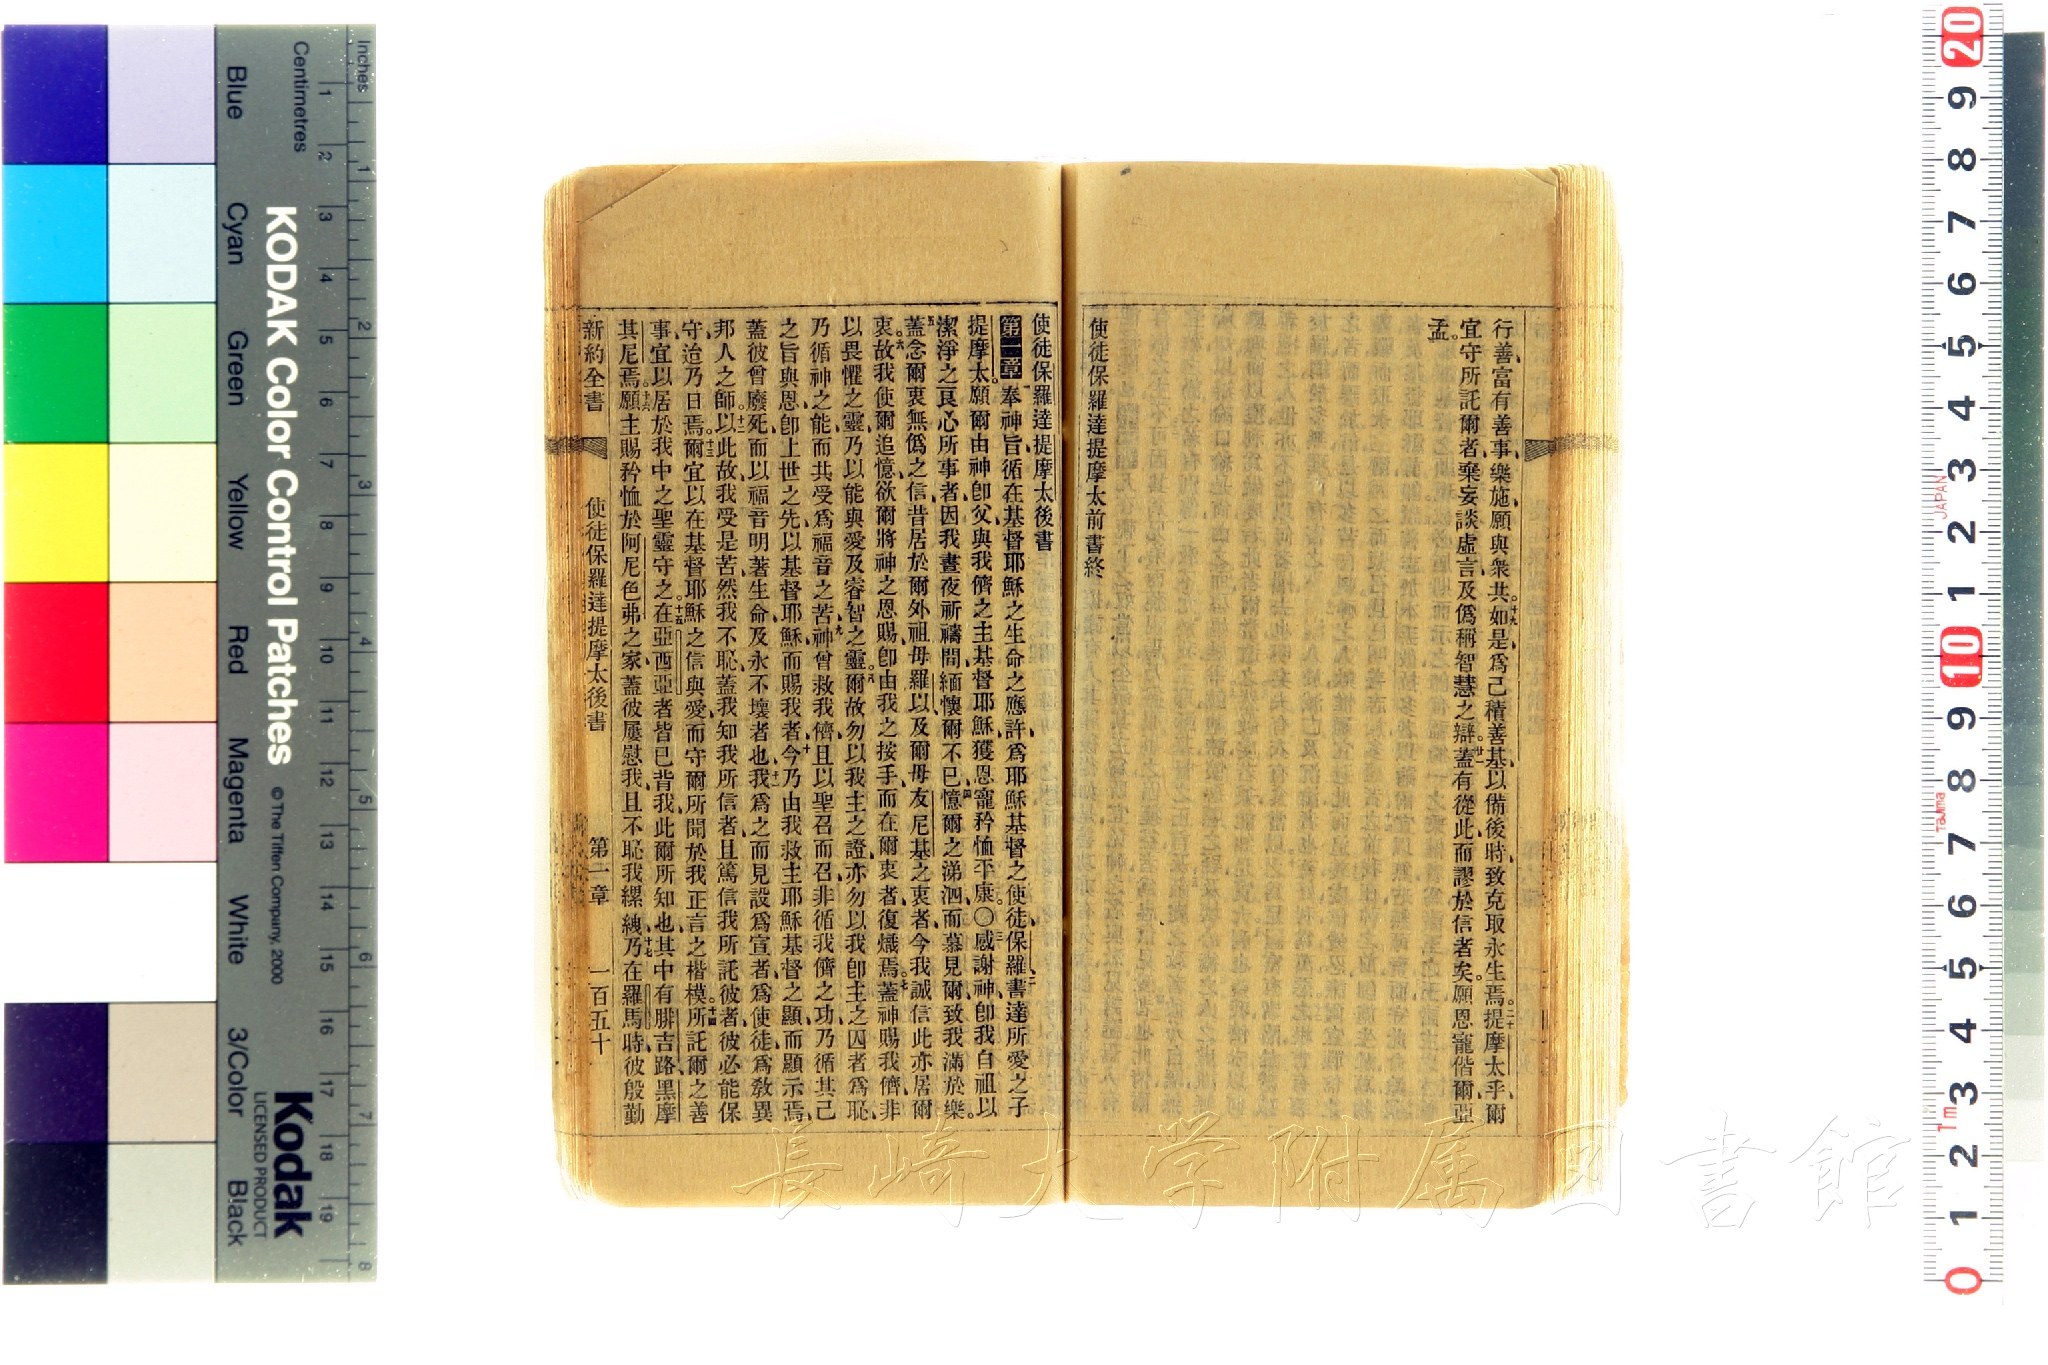 行善富有善事樂施願與衆共十九如是爲己積善基以備後時致克取永生焉二十提摩太乎爾
宜守所託爾者棄妄談虛言及僞稱智慧之辯廿一蓋有從此而謬於信者矣願恩寵偕爾亞
孟
使徒保羅達提摩太前書終
使徒保羅達提摩太後書
第一章 一奉神旨循在基督耶穌之生命之應許爲耶穌基督之使徒保羅二書達所愛之子
提摩太願爾由神卽父與我儕之主基督耶穌獲恩寵矜恤平康〇三感謝神卽我自祖以
潔淨之良心所事者因我晝夜祈禱間緬懷爾不已四憶爾之涕泗而慕見爾致我滿於樂
五蓋念爾衷無僞之信昔居於爾外祖母羅以及爾母友尼基之衷者今我誠信此亦居爾
衷六故我使爾追憶欲爾將神之恩賜卽由我之按手而在爾衷者復熾焉七蓋神賜我儕非
以畏懼之靈乃以能與愛及睿智之靈八爾故勿以我主之證亦勿以我卽主之囚者爲恥
乃循神之能而共受爲福音之苦九神曾救我儕且以聖召而召非循我儕之功乃循其己
之旨與恩卽上世之先以基督耶穌而賜我者十今乃由我救主耶穌基督之顯而顯示焉
蓋彼曾廢死而以福音明著生命及永不壞者也十一我爲之而見設爲宣者爲使徒爲敎異
邦人之師十二以此故我受是苦然我不恥蓋我知我所信者且篤信我所託彼者彼必能保
守迨乃日焉十三爾宜以在基督耶穌之信與愛而守爾所聞於我正言之楷模十四所託爾之善
事宜以居於我中之聖靈守之十五在亞西亞者皆已背我此爾所知也其中有腓吉路黑摩
其尼焉十六願主賜矜恤於阿尼色弗之家蓋彼屢慰我且不恥我縲絏十七乃在羅馬時彼殷勤
新約全書 使徒保羅達提摩太後書 第一章 一百五十
長崎大学附属図書館
Inches
Centimetres
Blue Cyan Green Yellow Red Magenta White 3/Color Black
KODAK Color Control Patches © The Tiffen Company, 2000
Kodak
LICENSED PRODUCT
1 2 3 4 5 6 7 8 9 10 11 12 13 14 15 16 17 18 19
1 2 3 4 5 6 7 8
20 9 8 7 6 5 4 3 2 1 10 9 8 7 6 5 4 3 2 1 0
JAPAN
Tajima
Tm